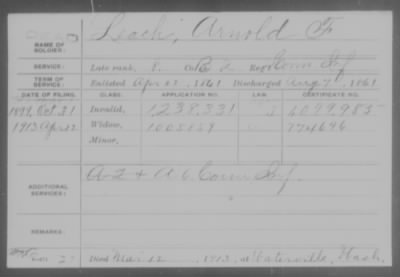 Dead
NAME OF SOLDIER: Leach, Arnold F
SERVICE: Late rank, P. Co. B 2 Reg't Conn Inf
TERM OF SERVICE: Enlisted Apr 22, 1861 Discharged Aug 7, 1861
DATE OF FILING. CLASS. APPLICATION NO. LAW. CERTIFICATE NO.
1899, Oct 31 Invalid, 1238,331 1099,985
1913 Apr 12 Widow, 1005159 774646
Minor,
ADDITIONAL SERVICES: A 2 & A 6 Conn Inf.
REMARKS:
Died Mar 12, 1913, at Waterville, Wash.